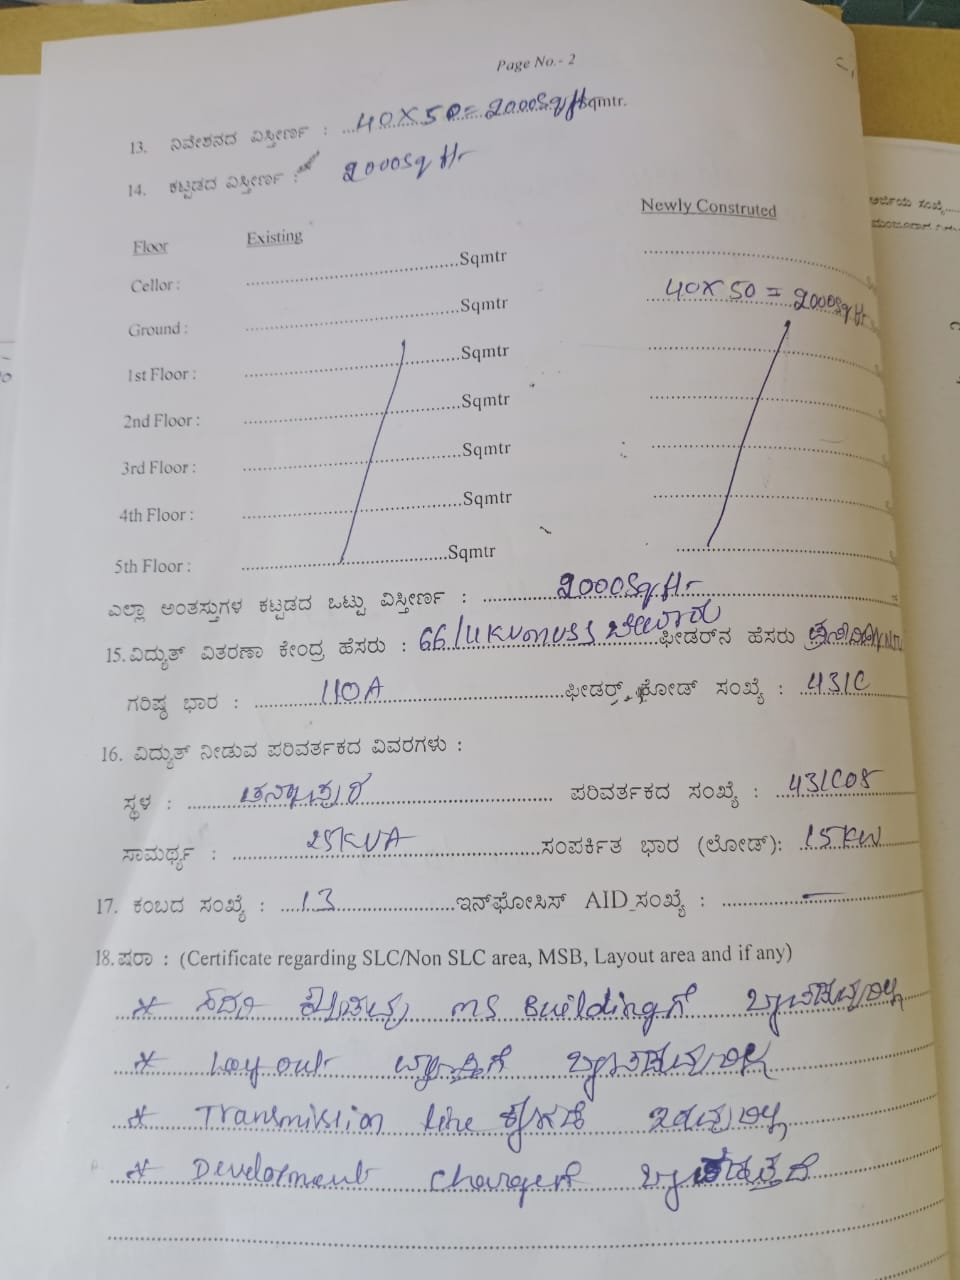 Page No.- 2
13. ನಿವೇಶನದ ವಿಸ್ತೀರ್ಣ : 40X50=2000Sqft Sqmtr.
14. ಕಟ್ಟಡದ ವಿಸ್ತೀರ್ಣ : 2000Sq ft
Floor Existing Newly Construted
Cellor : Sqmtr
Ground : Sqmtr 40X50 = 2000Sqft
1st Floor : Sqmtr
2nd Floor : Sqmtr
3rd Floor : Sqmtr
4th Floor : Sqmtr
5th Floor : Sqmtr
ಎಲ್ಲಾ ಅಂತಸ್ತುಗಳ ಕಟ್ಟಡದ ಒಟ್ಟು ವಿಸ್ತೀರ್ಣ : 2000Sqft
15. ವಿದ್ಯುತ್ ವಿತರಣಾ ಕೇಂದ್ರ ಹೆಸರು : 66/11KV MUSS ಫೀಡರ್‌ನ ಹೆಸರು
ಗರಿಷ್ಠ ಭಾರ : 110A ಫೀಡರ್ ಕೋಡ್ ಸಂಖ್ಯೆ : 431C
16. ವಿದ್ಯುತ್ ನೀಡುವ ಪರಿವರ್ತಕದ ವಿವರಗಳು :
ಸ್ಥಳ : ಪರಿವರ್ತಕದ ಸಂಖ್ಯೆ : 431C08
ಸಾಮರ್ಥ್ಯ : 25KVA ಸಂಪರ್ಕಿತ ಭಾರ (ಲೋಡ್): 15KW
17. ಕಂಬದ ಸಂಖ್ಯೆ : 13 ಇನ್‌ಫೋಸಿಸ್ AID ಸಂಖ್ಯೆ : —
18. ಷರಾ : (Certificate regarding SLC/Non SLC area, MSB, Layout area and if any)
* ಸದರಿ ಕಟ್ಟಡವು MS Buildingಗೆ ಒಳಪಡುವುದಿಲ್ಲ
* Layout ವ್ಯಾಪ್ತಿಗೆ ಒಳಪಡುವುದಿಲ್ಲ
* Transmission line ಕೆಳಗಡೆ ಇರುವುದಿಲ್ಲ
* Development Chargesಗೆ ಒಳಪಡುತ್ತದೆ